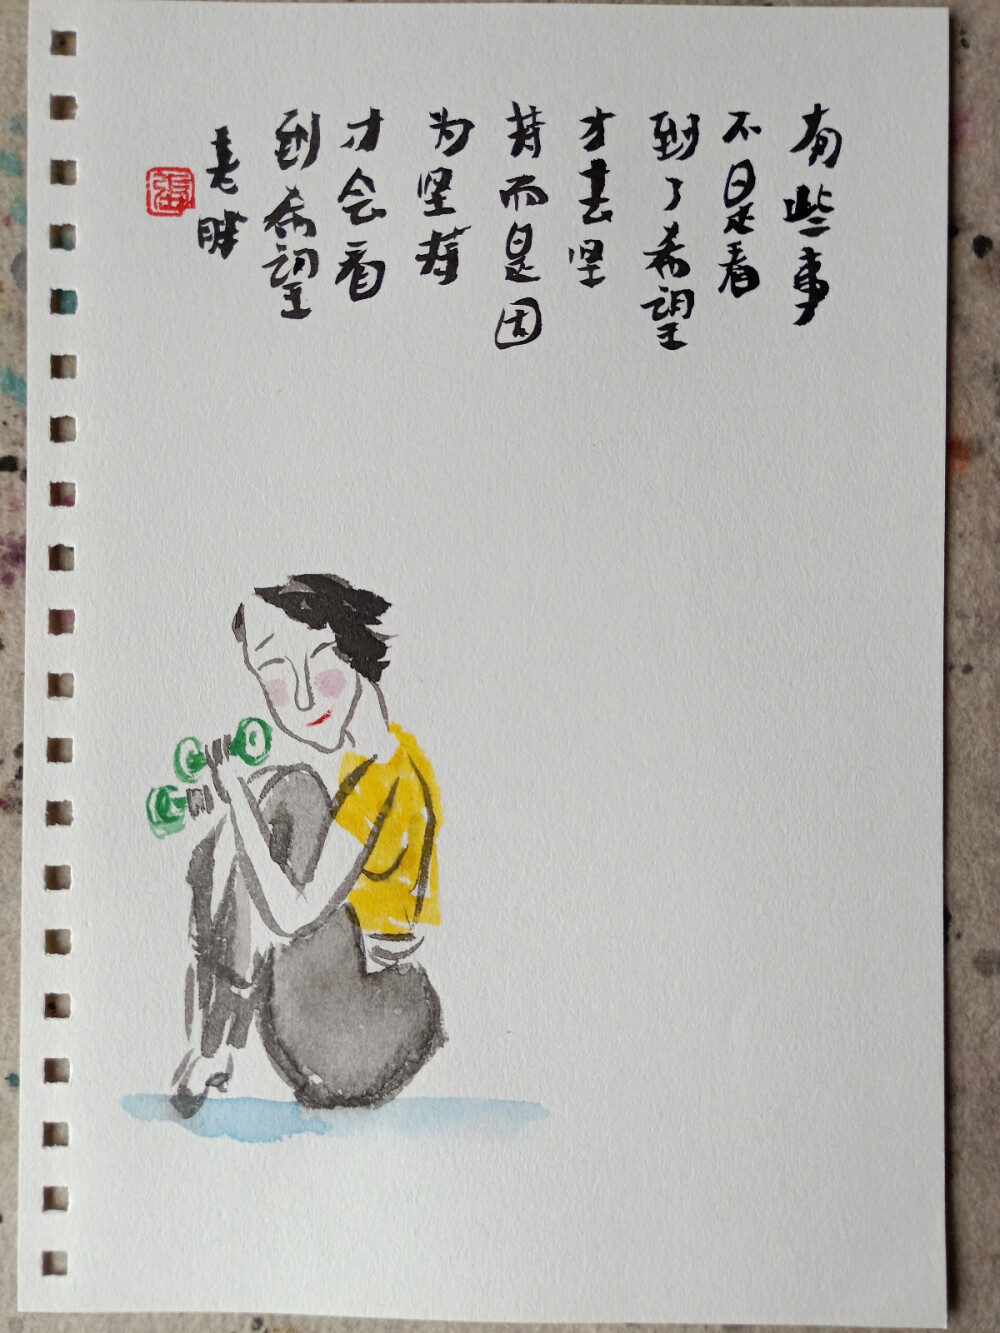 有些事
不是看
到了希望
才去坚
持而是因
为坚持
才会看
到希望
老胖
張